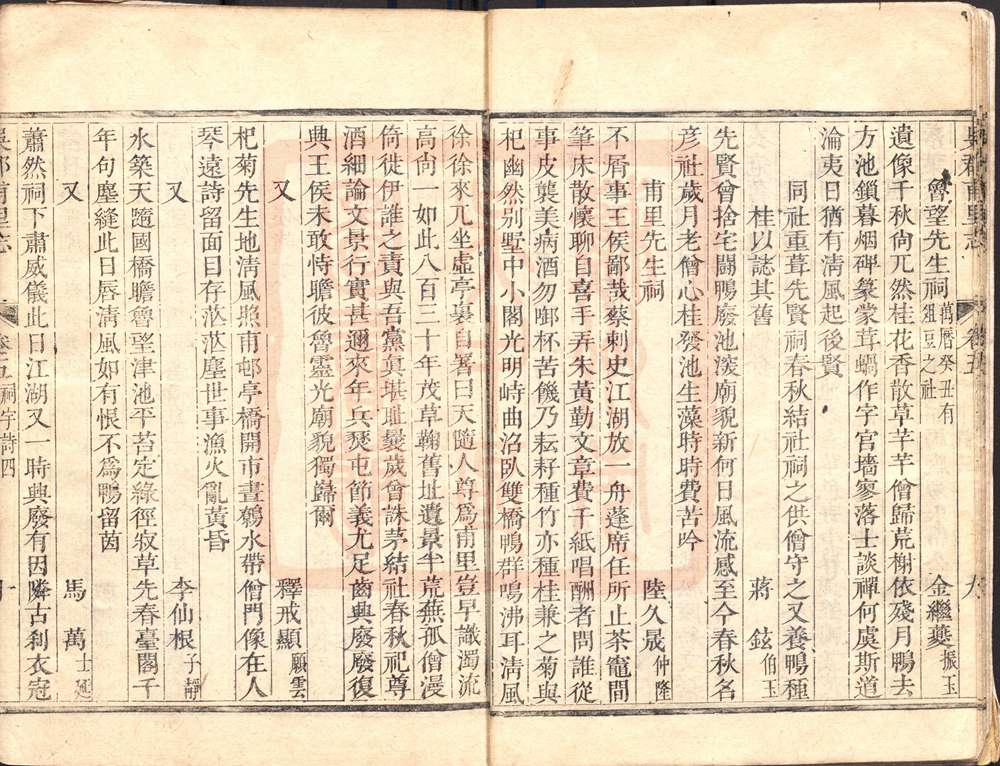 吳郡甫里志 卷五 六
魯望先生祠 萬曆癸丑有俎豆之社 金繼夔 振玉
遺像千秋尙兀然桂花香散草芊芊僧歸荒榭依殘月鴨去
方池鎖暮烟碑篆蒙茸蝸作字宮墻寥落士談禪何虞斯道
淪夷日猶有淸風起後賢
同社重葺先賢祠春秋結社祠之供僧守之又養鴨種
桂以誌其舊 蔣鉉 伯玉
先賢曾捨宅鬭鴨廢池湲廟貌新何日風流感至今春秋名
彥社歲月老僧心桂發池生藻時時費苦吟
甫里先生祠 陸久晟 仲隆
不屑事王侯鄙哉蔡刺史江湖放一舟蓬席任所止茶竈間
筆床散懷聊自喜手弄朱黃勤文章費千紙唱酬者問誰從
事皮襲美病酒勿啣杯苦饑乃耘耔種竹亦種桂兼之菊與
杞幽然别墅中小閣光明峙曲沼臥雙橋鴨群鳴沸耳淸風
徐徐來兀坐虛亭裏自署曰天隨人尊爲甫里豈早識濁流
高尙一如此八百三十年茂草鞠舊址遺景半荒蕪孤僧漫
倚徙伊誰之責與吾黨眞堪耻曩歲會誅茅結社春秋祀尊
酒細論文景行實甚邇來年兵燹屯節義尤足齒興廢廢復
興王侯未敢恃瞻彼魯靈光廟貌獨歸爾
又 釋戒顯 願雲
杞菊先生地淸風照甫邨亭橋開市畫鵝水帶僧門像在人
琴遠詩留面目存茫茫塵世事漁火亂黃昏
又 李仙根 子靜
水築天隨國橋瞻魯望津池平苔定綠徑寂草先春臺閣千
年句塵縫此日唇淸風如有悵不爲鴨留茵
又 馬萬 士延
蕭然祠下肅威儀此日江湖又一時興廢有因隣古刹衣冠
吳郡甫里志 卷之五 祠宇詩四